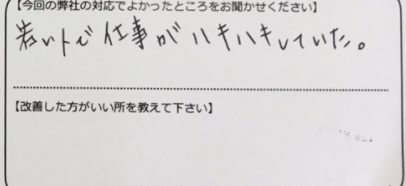 【今回の弊社の対応でよかったところをお聞かせください】
若い人で仕事がハキハキしていた。
【改善した方がいい所を教えて下さい】